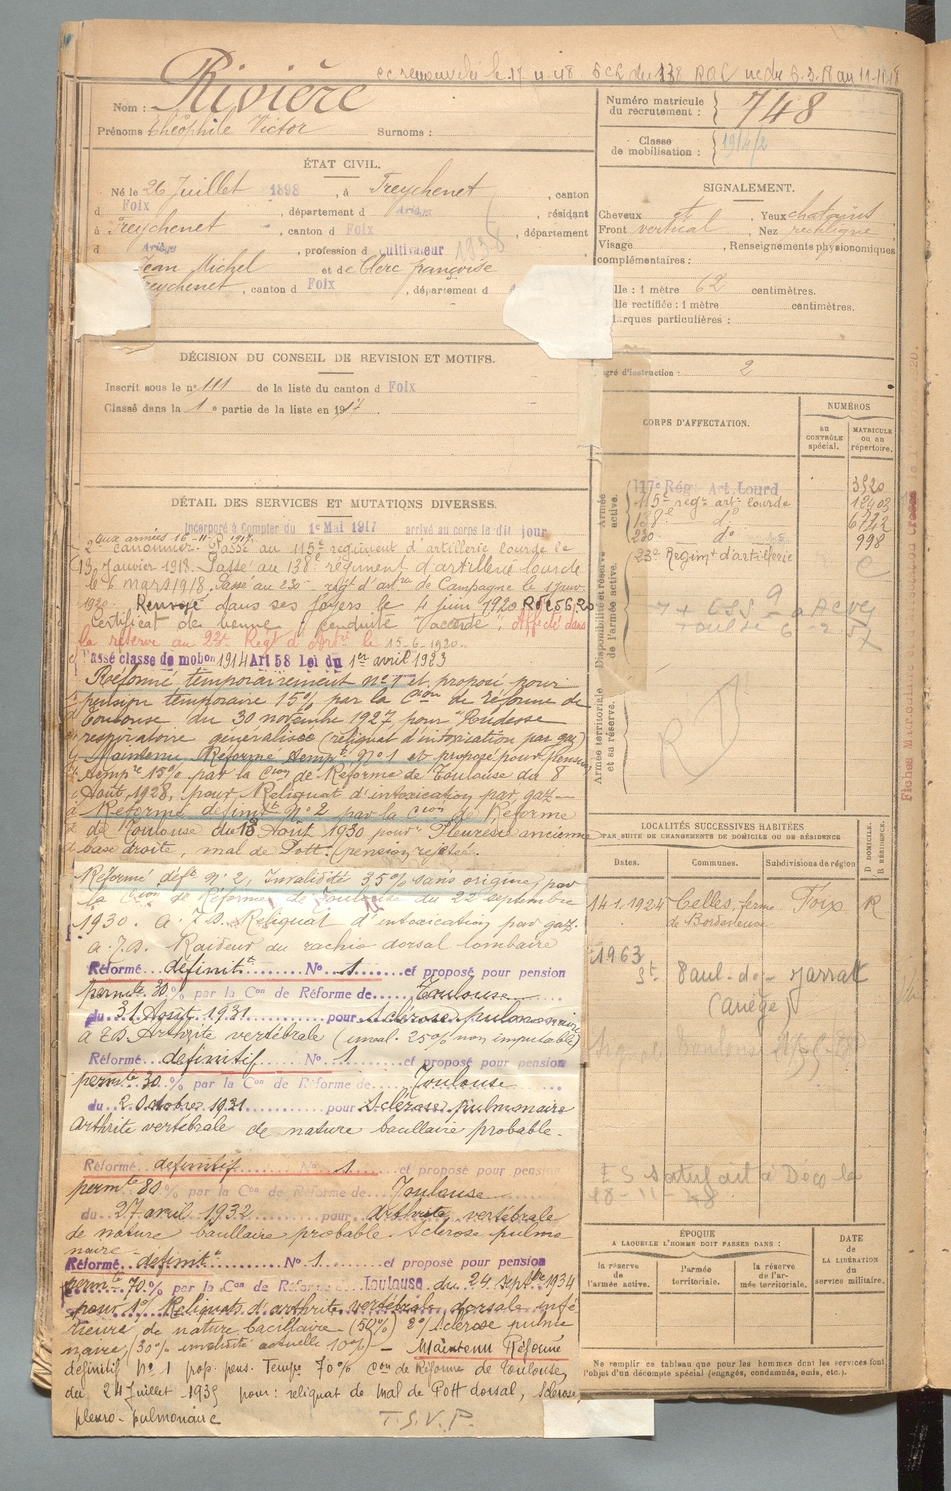 Rivière
Nom :
Prénoms Théophile Victor Surnoms :
Numéro matricule
du recrutement : 748
Classe
de mobilisation : 1914/2
ÉTAT CIVIL.
Né le 26 Juillet 1898, à Freychenet, canton
d Foix, département d Ariège, résidant
à Freychenet, canton d Foix, département
d Ariège, profession d cultivateur 1938
Jean Michel et de Clerc françoise
Freychenet, canton d Foix, département d
SIGNALEMENT.
Cheveux Yeux chatains
Front vertical Nez rectiligne
Visage , Renseignements physionomiques
complémentaires :
lle : 1 mètre 62 centimètres.
lle rectifiée : 1 mètre centimètres.
arques particulières :
gré d'instruction : 2
DÉCISION DU CONSEIL DE REVISION ET MOTIFS.
Inscrit sous le n° 111 de la liste du canton d Foix
Classé dans la 1 e partie de la liste en 1917.
CORPS D'AFFECTATION.
NUMÉROS
au
CONTRÔLE
spécial.
MATRICULE
ou au
répertoire.
Armée
active.
117e Rég. Art. Lourd 3920
115e régt artie lourde 12403
138e do 6742
230 do 998
23e Regimt d'artillerie
Disponibilité et réserve
de l'armée active.
Armée territoriale
et sa réserve.
DÉTAIL DES SERVICES ET MUTATIONS DIVERSES.
Incorporé à Compter du 1er Mai 1917 arrivé au corps le dit jour
aux armées 16-11-1917.
2e canonnier. Passé au 115e regiment d'artillerie lourde le
13 Janvier 1918. Passé au 138e régiment d'artillerie lourde
le 6 mars 1918. Passé au 230e régt d'artie de Campagne le 1 janv.
1920. Renvoyé dans ses foyers le 4 juin 1920
Certificat de bonne conduite "Accordé". Affecté dans
la réserve au 23e Regt d'Artie le 15-6-1920.
Passé classe de mobon 1914 Art 58 Loi du 1er avril 1923
Réformé temporairement n° 1 et proposé pour
pension temporaire 15% par la Cion de réforme de
Toulouse du 30 novembre 1927 pour "Rudesse
respiratoire généralisée (reliquat d'intoxication par gaz)
Maintenu Réformé tempre n° 1 et proposé pour pension
tempre 15% par la Cion de Réforme de Toulouse du 8
Août 1928, pour Reliquat d'intoxication par gaz-
Réformé définit n° 2 par la Cion de Réforme
de Toulouse du 18 Août 1930 pour Pleurésie ancienne
base droite, mal de Pott. (pension rejetée.
Réformé déft n° 2, Invalidité 35% sans origine, par
la Cion de Réforme de Toulouse du 22 septembre
1930. a. I.D. Reliquat d'intoxication par gaz.
a. I.D. Raideur du rachis dorsal lombaire
Réformé définitt N° 1 et proposé pour pension
permte 30% par la Con de Réforme de Toulouse
du 31 Août 1931 pour Sclérose pulmonaire
à E.D. Arthrite vertébrale (inval. 25% non imputable)
Réformé definitif N° 1 et proposé pour pension
permte 30 % par la Con de Réforme de Toulouse
du 2 Octobre 1931 pour Sclérose pulmonaire
arthrite vertébrale de nature bacillaire probable.
Réformé definitif N° 1 et proposé pour pension
permte 80% par la Con de Réforme de Toulouse
du 27 avril 1932 pour Arthrite vertébrale
de nature bacillaire probable. Sclérose pulmo
naire
Réformé définitt N° 1 et proposé pour pension
permte 70% par la Con de Réforme Toulouse du 24 Septbre 1934
pour 1° Reliquats d'arthrite vertébrale dorsale infé
rieure, de nature bacillaire (50%) 2° Sclérose pulmo
naire, (30% invalidité actuelle 10%) - Maintenu Réformé
définitif N° 1 prop. pens. Tempe 70% Con de Réforme de Toulouse,
du 24 Juillet 1935 pour : reliquat de mal de Pott dorsal, sclerose
pleuro-pulmonaire
T.S.V.P.
LOCALITÉS SUCCESSIVES HABITÉES
PAR SUITE DE CHANGEMENTS DE DOMICILE OU DE RÉSIDENCE
Dates. Communes. Subdivisions de région
D DOMICILE.
R RÉSIDENCE.
14.1.1924 Celles, ferme Foix R
de Bordeneuve
1963
St. Paul-de-Jarrat
(Ariège)
E S Satisfait à
18-11-
ÉPOQUE
A LAQUELLE L'HOMME DOIT PASSER DANS :
la réserve
de
l'armée active.
l'armée
territoriale.
la réserve
de l'ar-
mée territoriale.
DATE
de
LA LIBÉRATION
du
service militaire.
Ne remplir ce tableau que pour les hommes dont les services font
l'objet d'un décompte spécial (engagés, condamnés, omis, etc.).